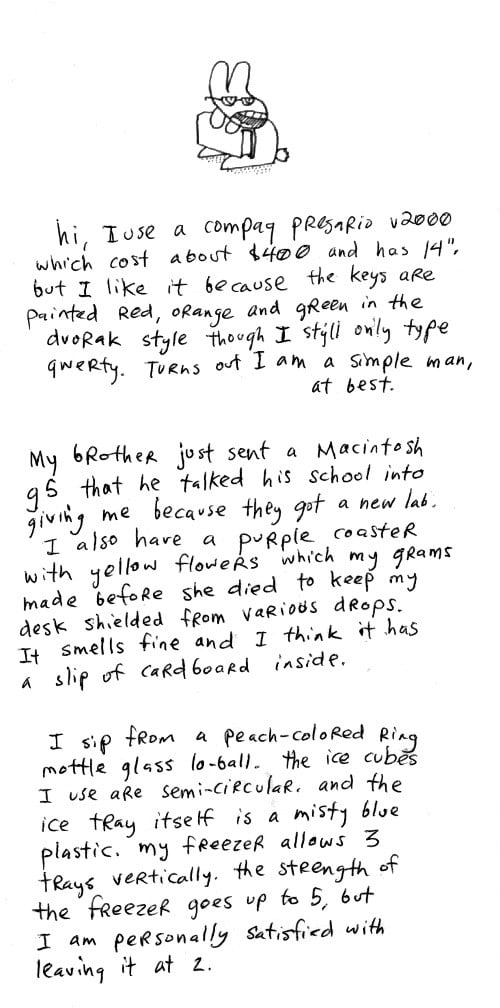 hi, I use a compaq presario v2000
which cost about $400 and has 14".
but I like it because the keys are
painted red, orange and green in the
dvorak style though I still only type
qwerty. Turns out I am a simple man,
at best.
My brother just sent a Macintosh
g5 that he talked his school into
giving me because they got a new lab.
I also have a purple coaster
with yellow flowers which my grams
made before she died to keep my
desk shielded from various drops.
It smells fine and I think it has
a slip of cardboard inside.
I sip from a peach-colored ring
mottle glass lo-ball. the ice cubes
I use are semi-circular. and the
ice tray itself is a misty blue
plastic. my freezer allows 3
trays vertically. the strength of
the freezer goes up to 5, but
I am personally satisfied with
leaving it at 2.